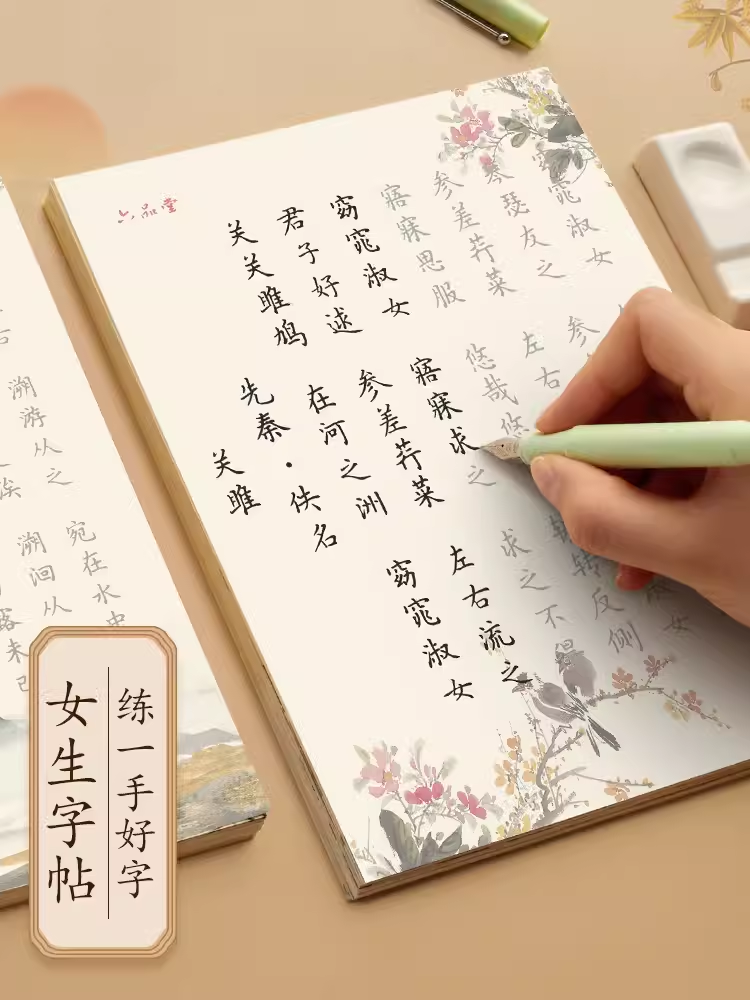 六品堂
关雎
先秦·佚名
关关雎鸠
在河之洲
窈窕淑女
君子好逑
参差荇菜
左右流之
窈窕淑女
寤寐求之
求之不得
寤寐思服
悠哉悠
转反侧
参差荇菜
左右
淑女
琴瑟友之
参
窈窕淑女
右
溯游从之
宛在水中
涘
溯洄从
未已
女生字帖
练一手好字